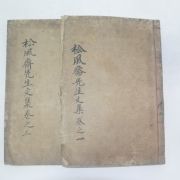 松風齋先生文集卷之一
松風齋先生文集卷之三